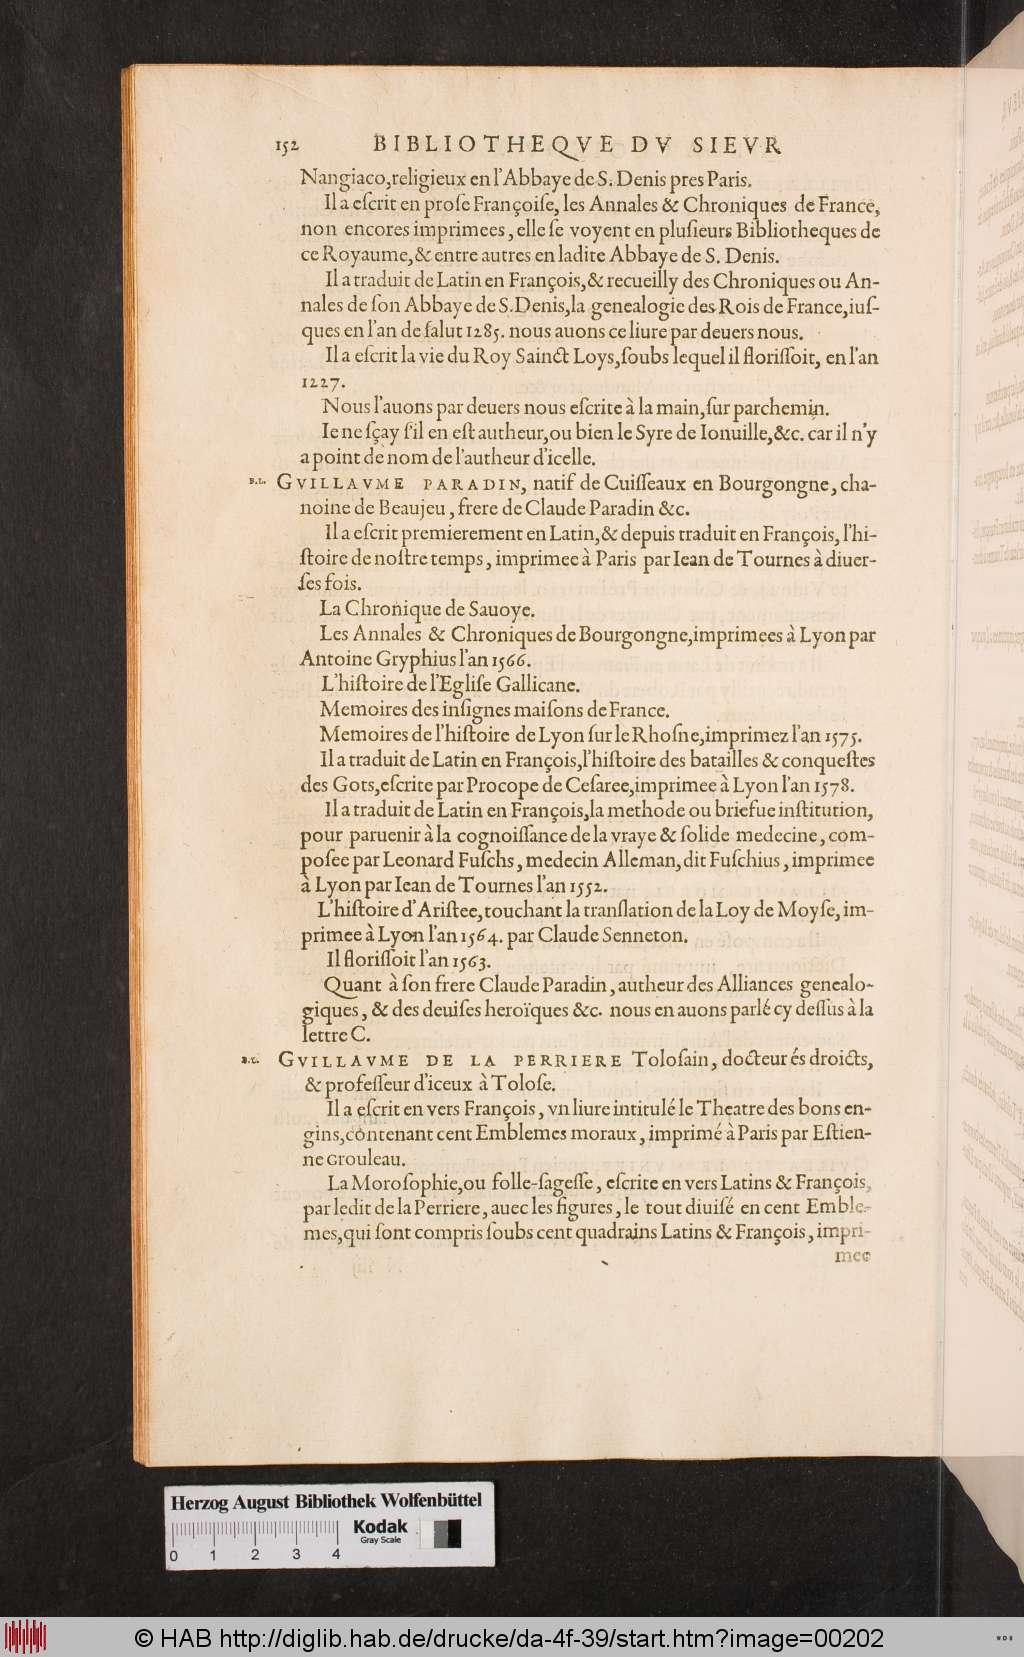 152 BIBLIOTHEQVE DV SIEVR
Nangiaco, religieux en l'Abbaye de S. Denis pres Paris.
Il a eſcrit en proſe Françoiſe, les Annales & Chroniques de France,
non encores imprimees, elle ſe voyent en pluſieurs Bibliotheques de
ce Royaume, & entre autres en ladite Abbaye de S. Denis.
Il a traduit de Latin en François, & recueilly des Chroniques ou An-
nales de ſon Abbaye de S. Denis, la genealogie des Rois de France, iuſ-
ques en l'an de ſalut 1285. nous auons ce liure par deuers nous.
Il a eſcrit la vie du Roy Sainct Loys, ſoubs lequel il floriſſoit, en l'an
1227.
Nous l'auons par deuers nous eſcrite à la main, ſur parchemin.
Ie ne ſçay ſ'il en eſt autheur, ou bien le Syre de Ionuille, &c. car il n'y
a point de nom de l'autheur d'icelle.
B.L. GVILLAVME PARADIN, natif de Cuiſſeaux en Bourgongne, cha-
noine de Beaujeu, frere de Claude Paradin &c.
Il a eſcrit premierement en Latin, & depuis traduit en François, l'hi-
ſtoire de noſtre temps, imprimee à Paris par Iean de Tournes à diuer-
ſes fois.
La Chronique de Sauoye.
Les Annales & Chroniques de Bourgongne, imprimees à Lyon par
Antoine Gryphius l'an 1566.
L'hiſtoire de l'Egliſe Gallicane.
Memoires des inſignes maiſons de France.
Memoires de l'hiſtoire de Lyon ſur le Rhoſne, imprimez l'an 1575.
Il a traduit de Latin en François, l'hiſtoire des batailles & conqueſtes
des Gots, eſcrite par Procope de Ceſaree, imprimee à Lyon l'an 1578.
Il a traduit de Latin en François, la methode ou briefue inſtitution,
pour paruenir à la cognoiſſance de la vraye & ſolide medecine, com-
poſee par Leonard Fuſchs, medecin Alleman, dit Fuſchius, imprimee
à Lyon par Iean de Tournes l'an 1552.
L'hiſtoire d'Ariſtee, touchant la tranſlation de la Loy de Moyſe, im-
primee à Lyon l'an 1564. par Claude Senneton.
Il floriſſoit l'an 1563.
Quant à ſon frere Claude Paradin, autheur des Alliances genealo-
giques, & des deuiſes heroïques &c. nous en auons parlé cy deſſus à la
lettre C.
B.L. GVILLAVME DE LA PERRIERE Toloſain, docteur és droicts,
& profeſſeur d'iceux à Toloſe.
Il a eſcrit en vers François, vn liure intitulé le Theatre des bons en-
gins, contenant cent Emblemes moraux, imprimé à Paris par Eſtien-
ne Grouleau.
La Moroſophie, ou folle-ſageſſe, eſcrite en vers Latins & François,
par ledit de la Perriere, auec les figures, le tout diuiſé en cent Emble-
mes, qui ſont compris ſoubs cent quadrains Latins & François, impri-
mee
Herzog August Bibliothek Wolfenbüttel
Kodak
Gray Scale
0 1 2 3 4
© HAB http://diglib.hab.de/drucke/da-4f-39/start.htm?image=00202